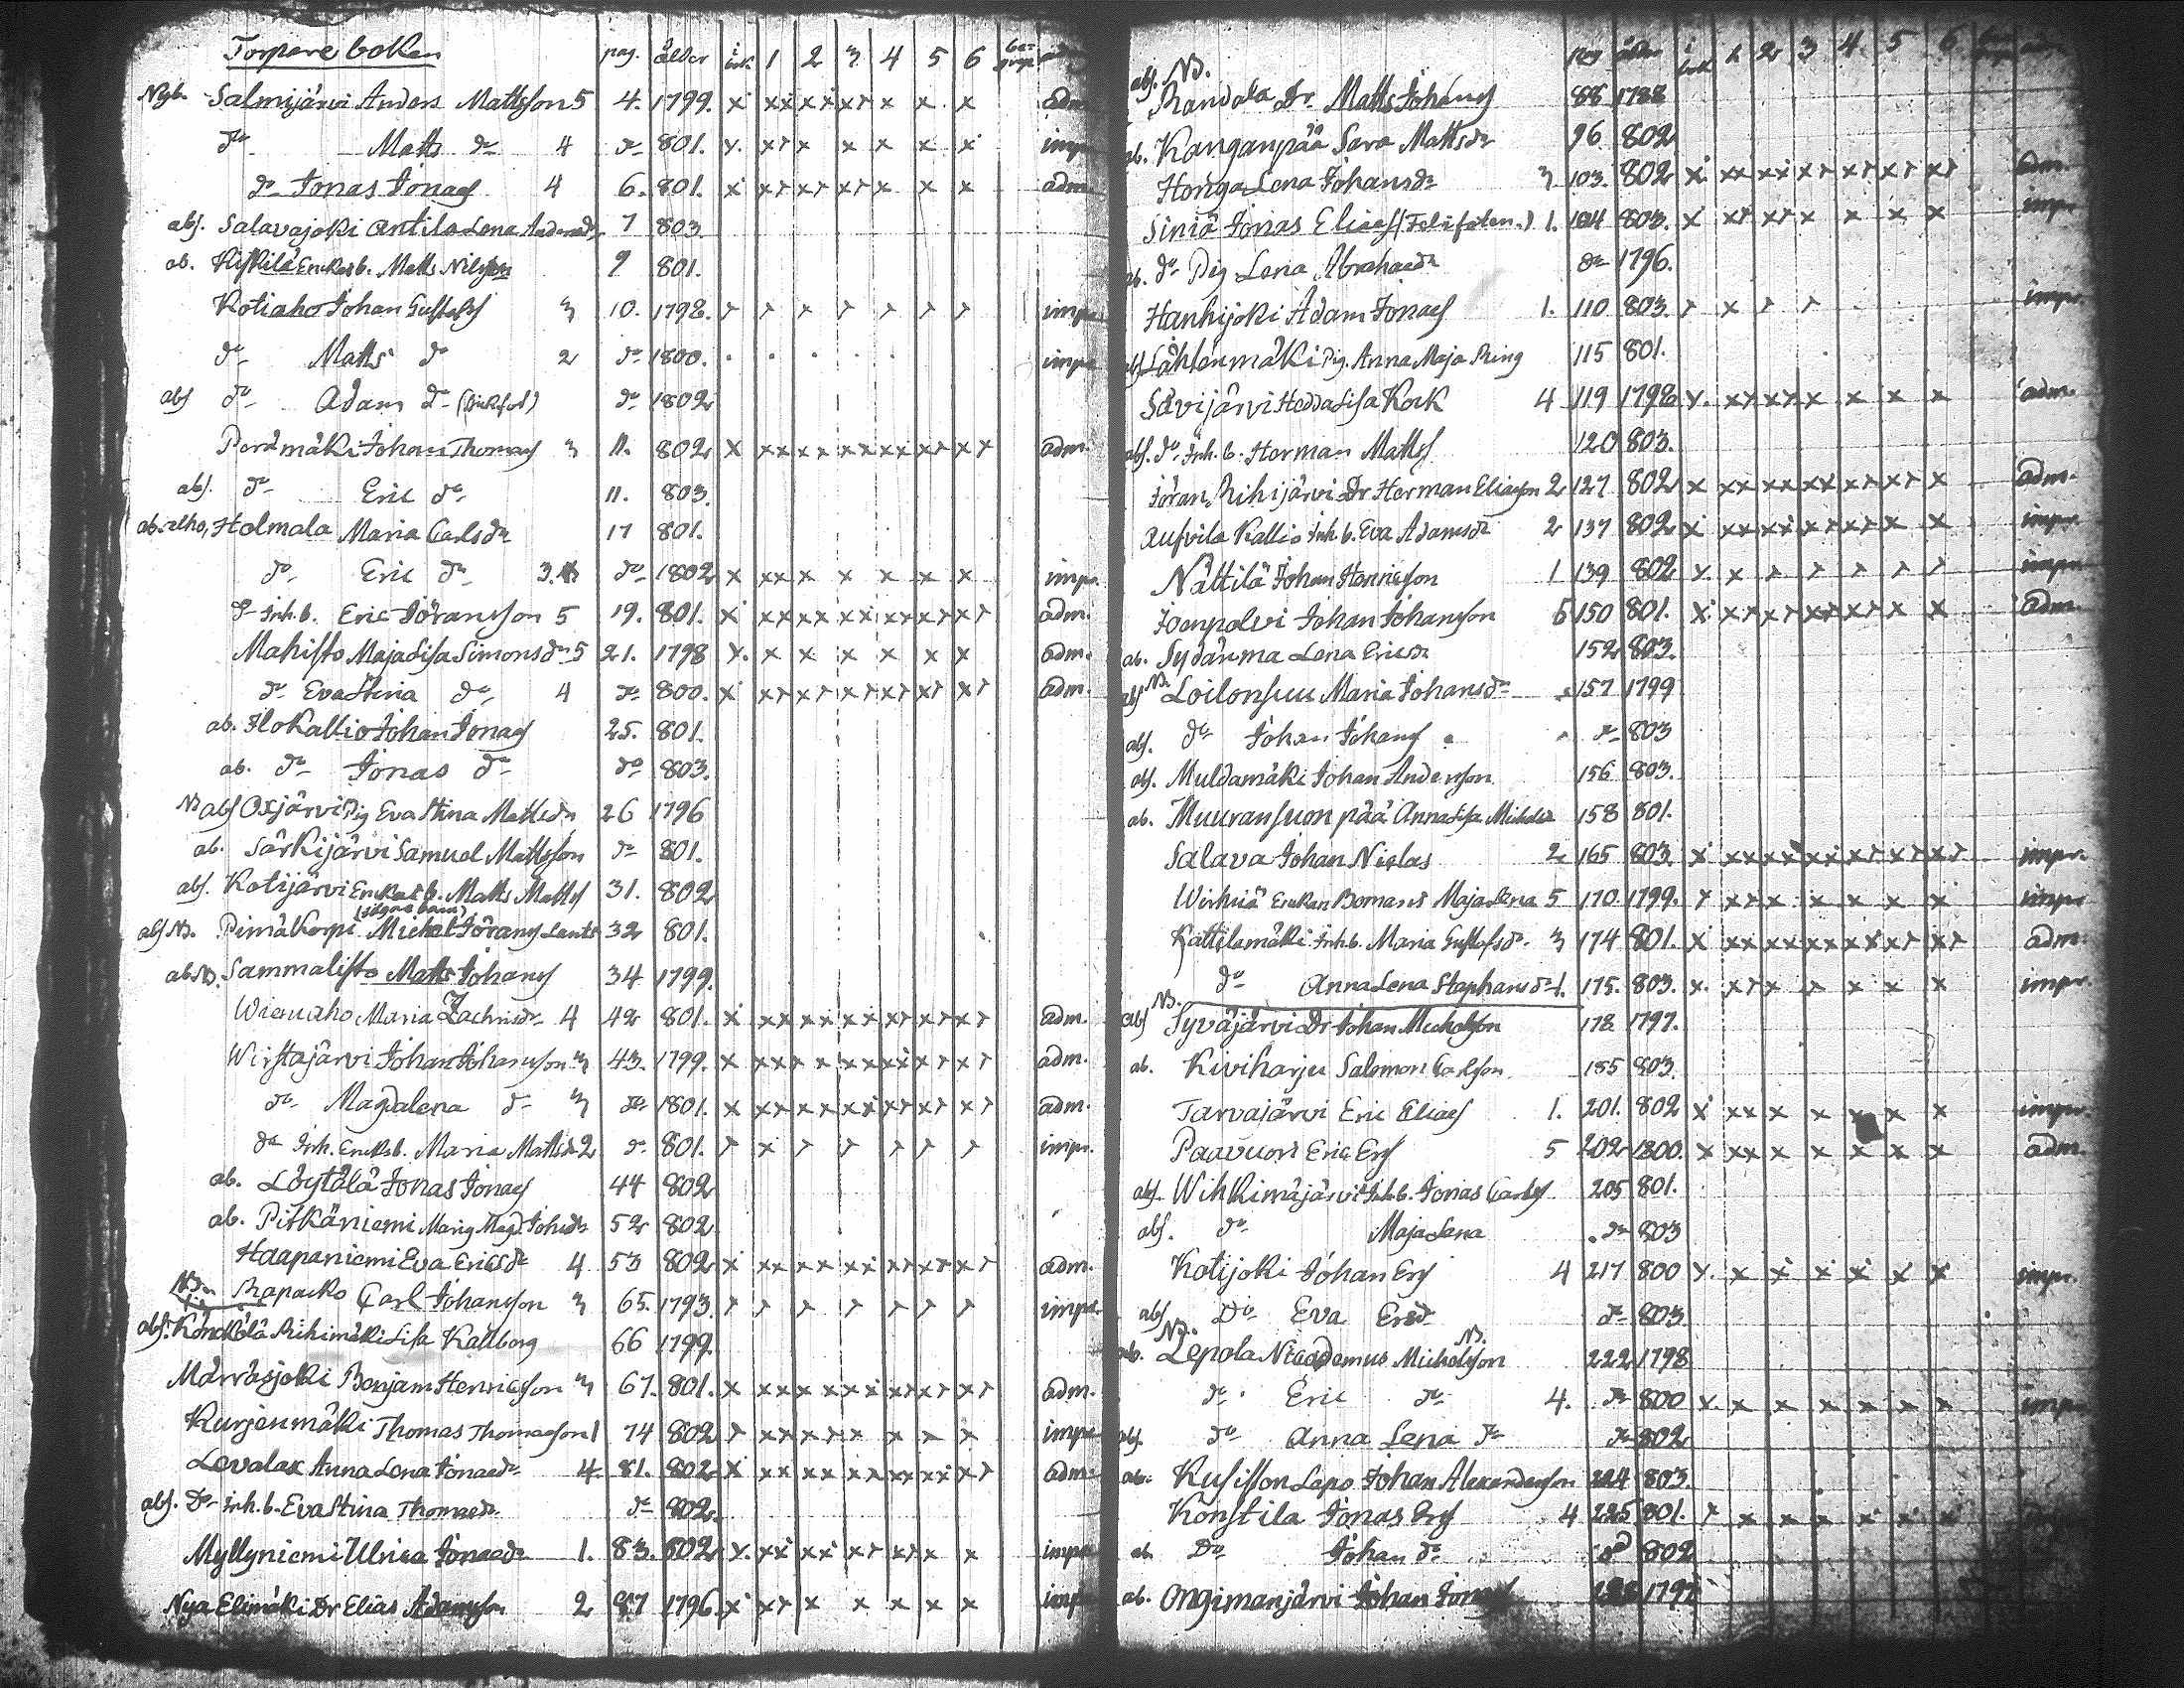 Torpare boken pag. ålder i bok. 1 2 3 4 5 6
Nyb. Salmijärvi Anders Mattsson 5 4. 1799. x xx xx xx x x x adm.
do Matts do 4 do 801. x. xx x x x x x impr.
do Jonas Jonass 4 6. 801. x xx xx xx x x x adm.
abs. Salavajoki Antila Lena Andersdr 7 803.
ab. Kiskilä Enkas b. Matts Nilsson 9 801.
Kotiaho Johan Gustafss 3 10. 1798. impr.
do Matts do 2 do 1800. impr.
abs do Adam do do 1802
Perämäki Johan Thomass 3 11. 802 x xx xx xx xx xx xx adm.
abs. do Eric do 11. 803.
ab. Holmala Maria Carlsdr 17 801.
do Eric do 3. do 1802 x xx x x x x x impr.
do Inh. b. Eric Jöransson 5 19. 801. x xx xx xx xx xx xx adm.
Mahisto Maja Lisa Simonsdr 5 21. 1798 x. x x x x x x adm.
do Eva Stina do 4 do 800. x xx xx xx xx xx xx adm.
ab. Ilokallio Johan Jonass 25. 801.
ab. do Jonas do do 803.
NB abs Oxjärvi Pig Eva Stina Mattsdr 26 1796
ab. Särkijärvi Samuel Mattsson do 801.
abs. Kotijärvi Enkas b. Matts Mattss 31. 802
abs NB. Pimäkorpi Michel Jöranss 32 801.
abs NB. Sammalisto Matts Johanss 34 1799.
Wiemaho Maria Zachrisdr 4 42 801. x xx xx xx xx xx xx adm.
Wirstajärvi Johan Johansson 3 43. 1799. x xx x x xx xx xx xx adm.
do Magdalena do 3 do 1801. x xx xx xx xx xx xx adm.
do Inh. Enkas b. Maria Mattsdr 2 do 801. impr.
ab. Löytälä Jonas Jonass 44 802
ab. Pitkäniemi Maria Magd. Johsdr 52 802
Haapaniemi Eva Ericsdr 4 53 802 x xx xx xx xx xx xx adm.
NB. Rapacko Carl Johansson 3 65. 1793. impr.
abs. Könckölä Riihimäki Lisa Kallberg 66 1799.
Märräsjoki Benjam Henricsson 3 67. 801. x xx xx xx xx xx xx adm.
Kurjenmäki Thomas Thomasson 1 74 802 xx xx x x x x impr.
Levalax Anna Lena Jonaedr 4 81. 802 x xx xx xx xx xx xx adm.
abs. Do Inh. b. Eva Stina Thomaedr do 802.
Myllyniemi Ulrica Jonaedr 1. 83. 802 x. xx xx xx xx x x impr.
Nya Elimäki Dr Elias Adamsson 2 87 1796. x xx x x x x x impr.
pag ålder i bok 1 2 3 4 5 6
abs. NB. Randala Dr. Matts Johanss 88 1788
ab. Kanganpää Sara Mattsdr 96 802
Honga Lena Johansdr 3 103. 802 x xx xx xx xx xx xx adm.
Siniä Jonas Eliass 1. 104 803. x xx xx x x x x impr.
ab. do Pig Lena Abrahaedr do 1796.
Hanhijoki Adam Jonass 1. 110 803. impr.
abs. Lähtenmäki Pig. Anna Maja Ring 115 801.
Savijärvi Hedda Lisa Kock 4 119 1798 x. xx xx x x x x adm.
abs. do Inh. b. Herman Mattss 120 803.
Jöran Riihijärvi Dr Herman Eliasson 2 127 802 x xx xx xx xx xx x adm.
Aufvila Kallio Inh. b. Eva Adamsdr 2 137 802 x xx xx xx xx x x impr.
Nättilä Johan Henricsson 1 139 802 x. x impr.
Joenpolvi Johan Johansson 5 150 801. x xx xx xx xx x x adm.
ab. Sydänma Lena Ericsdr 152 803.
abs NB. Loilonsuu Maria Johansdr 157 1799
abs. do Johan Johanss do 803
abs. Muldamäki Johan Andersson 156 803.
ab. Muuransuonpää Anna Lisa Michelsdr 158 801.
Salava Johan Niclas 2 165 803. x xx xx xx xx xx xx impr.
Wirhiä Enckan Bomans Maja Lena 5 170. 1799. xx x x x x x impr.
Kattilamäki Inh. b. Maria Gustafsdr 3 174 801. x xx xx xx xx xx xx adm.
do Anna Lena Staphansdr 1. 175. 803. x. xx x impr.
abs NB. Syväjärvi Dr Johan Michelsson 178 1797.
ab. Kiviharju Salomon Carlsson 185 803.
Tarvajärvi Eric Eliass 1. 201. 802 x xx x x x x x impr.
Paavuori Eric Ers 5 202 1800. x xx x x x x x adm.
abs. Wihkimäjärvi Inh. b. Jonas Carlss 205 801.
abs. do Maja Lena do 803
Kotijoki Johan Ers 4 217 800 x. x x x x x x impr.
abs Do Eva Ersdr do 803.
ab. NB. Lepola Nicodemus Michelsson NB. 222 1798
do Eric do 4. do 800 x. x x x x x x impr.
abs. do Anna Lena do do 802
ab. Kusisson Lapo Johan Alexandersson 224 803.
Konstila Jonas Ers 4 225 801. x x x x x x
ab. Do Johan do do 802
ab. Ongimanjärvi Johan 1797